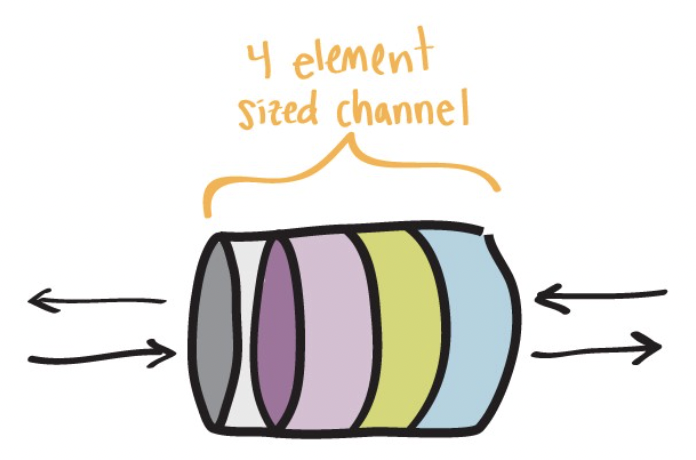 4 element
sized channel